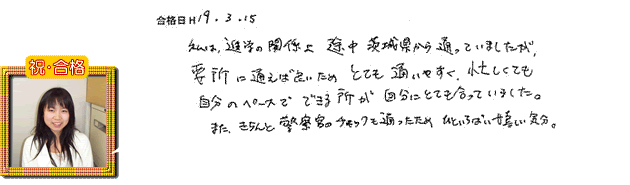 合格日H19.3.15
私は、進学の関係上 途中 茨城県から通っていましたが、
要所に通えば良いため とても 通いやすく、忙しくても
自分のペースで できる所が 自分にとても合っていました。
また、きちんと 警察官のチェックも通ったため 嬉しい気分。
祝・合格